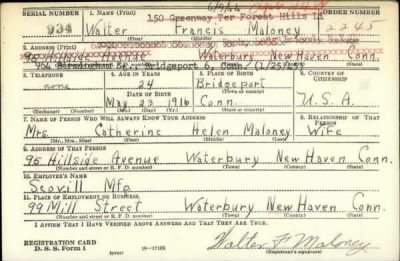 6/9/44
SERIAL NUMBER 1. NAME (Print) ORDER NUMBER
150 Greenway Ter Forest Hills LI
934 Walter Francis Maloney 2245
(First) (Middle) (Last)
2. ADDRESS (Print)
95 Hillside Avenue Waterbury New Haven Conn.
954 Birmingham St. - Bridgeport 6, Conn. (1/25/44)
3. TELEPHONE 4. AGE IN YEARS 5. PLACE OF BIRTH 6. COUNTRY OF CITIZENSHIP
none 24 Bridgeport
DATE OF BIRTH (Town or county)
May 23 1916 Conn. U.S.A.
(Exchange) (Number) (Mo.) (Day) (Yr.) (State or country)
7. NAME OF PERSON WHO WILL ALWAYS KNOW YOUR ADDRESS 8. RELATIONSHIP OF THAT PERSON
Mrs. Catherine Helen Maloney Wife
(Mr., Mrs., Miss) (First) (Middle) (Last)
9. ADDRESS OF THAT PERSON
95 Hillside Avenue Waterbury New Haven Conn.
(Number and street or R. F. D. number) (Town) (County) (State)
10. EMPLOYER'S NAME
Scovill Mfg
11. PLACE OF EMPLOYMENT OR BUSINESS
99 Mill Street Waterbury New Haven Conn.
(Number and street or R. F. D. number) (Town) (County) (State)
I AFFIRM THAT I HAVE VERIFIED ABOVE ANSWERS AND THAT THEY ARE TRUE.
REGISTRATION CARD
D. S. S. Form 1 (over) 16—17105 Walter F. Maloney
(Registrant's signature)